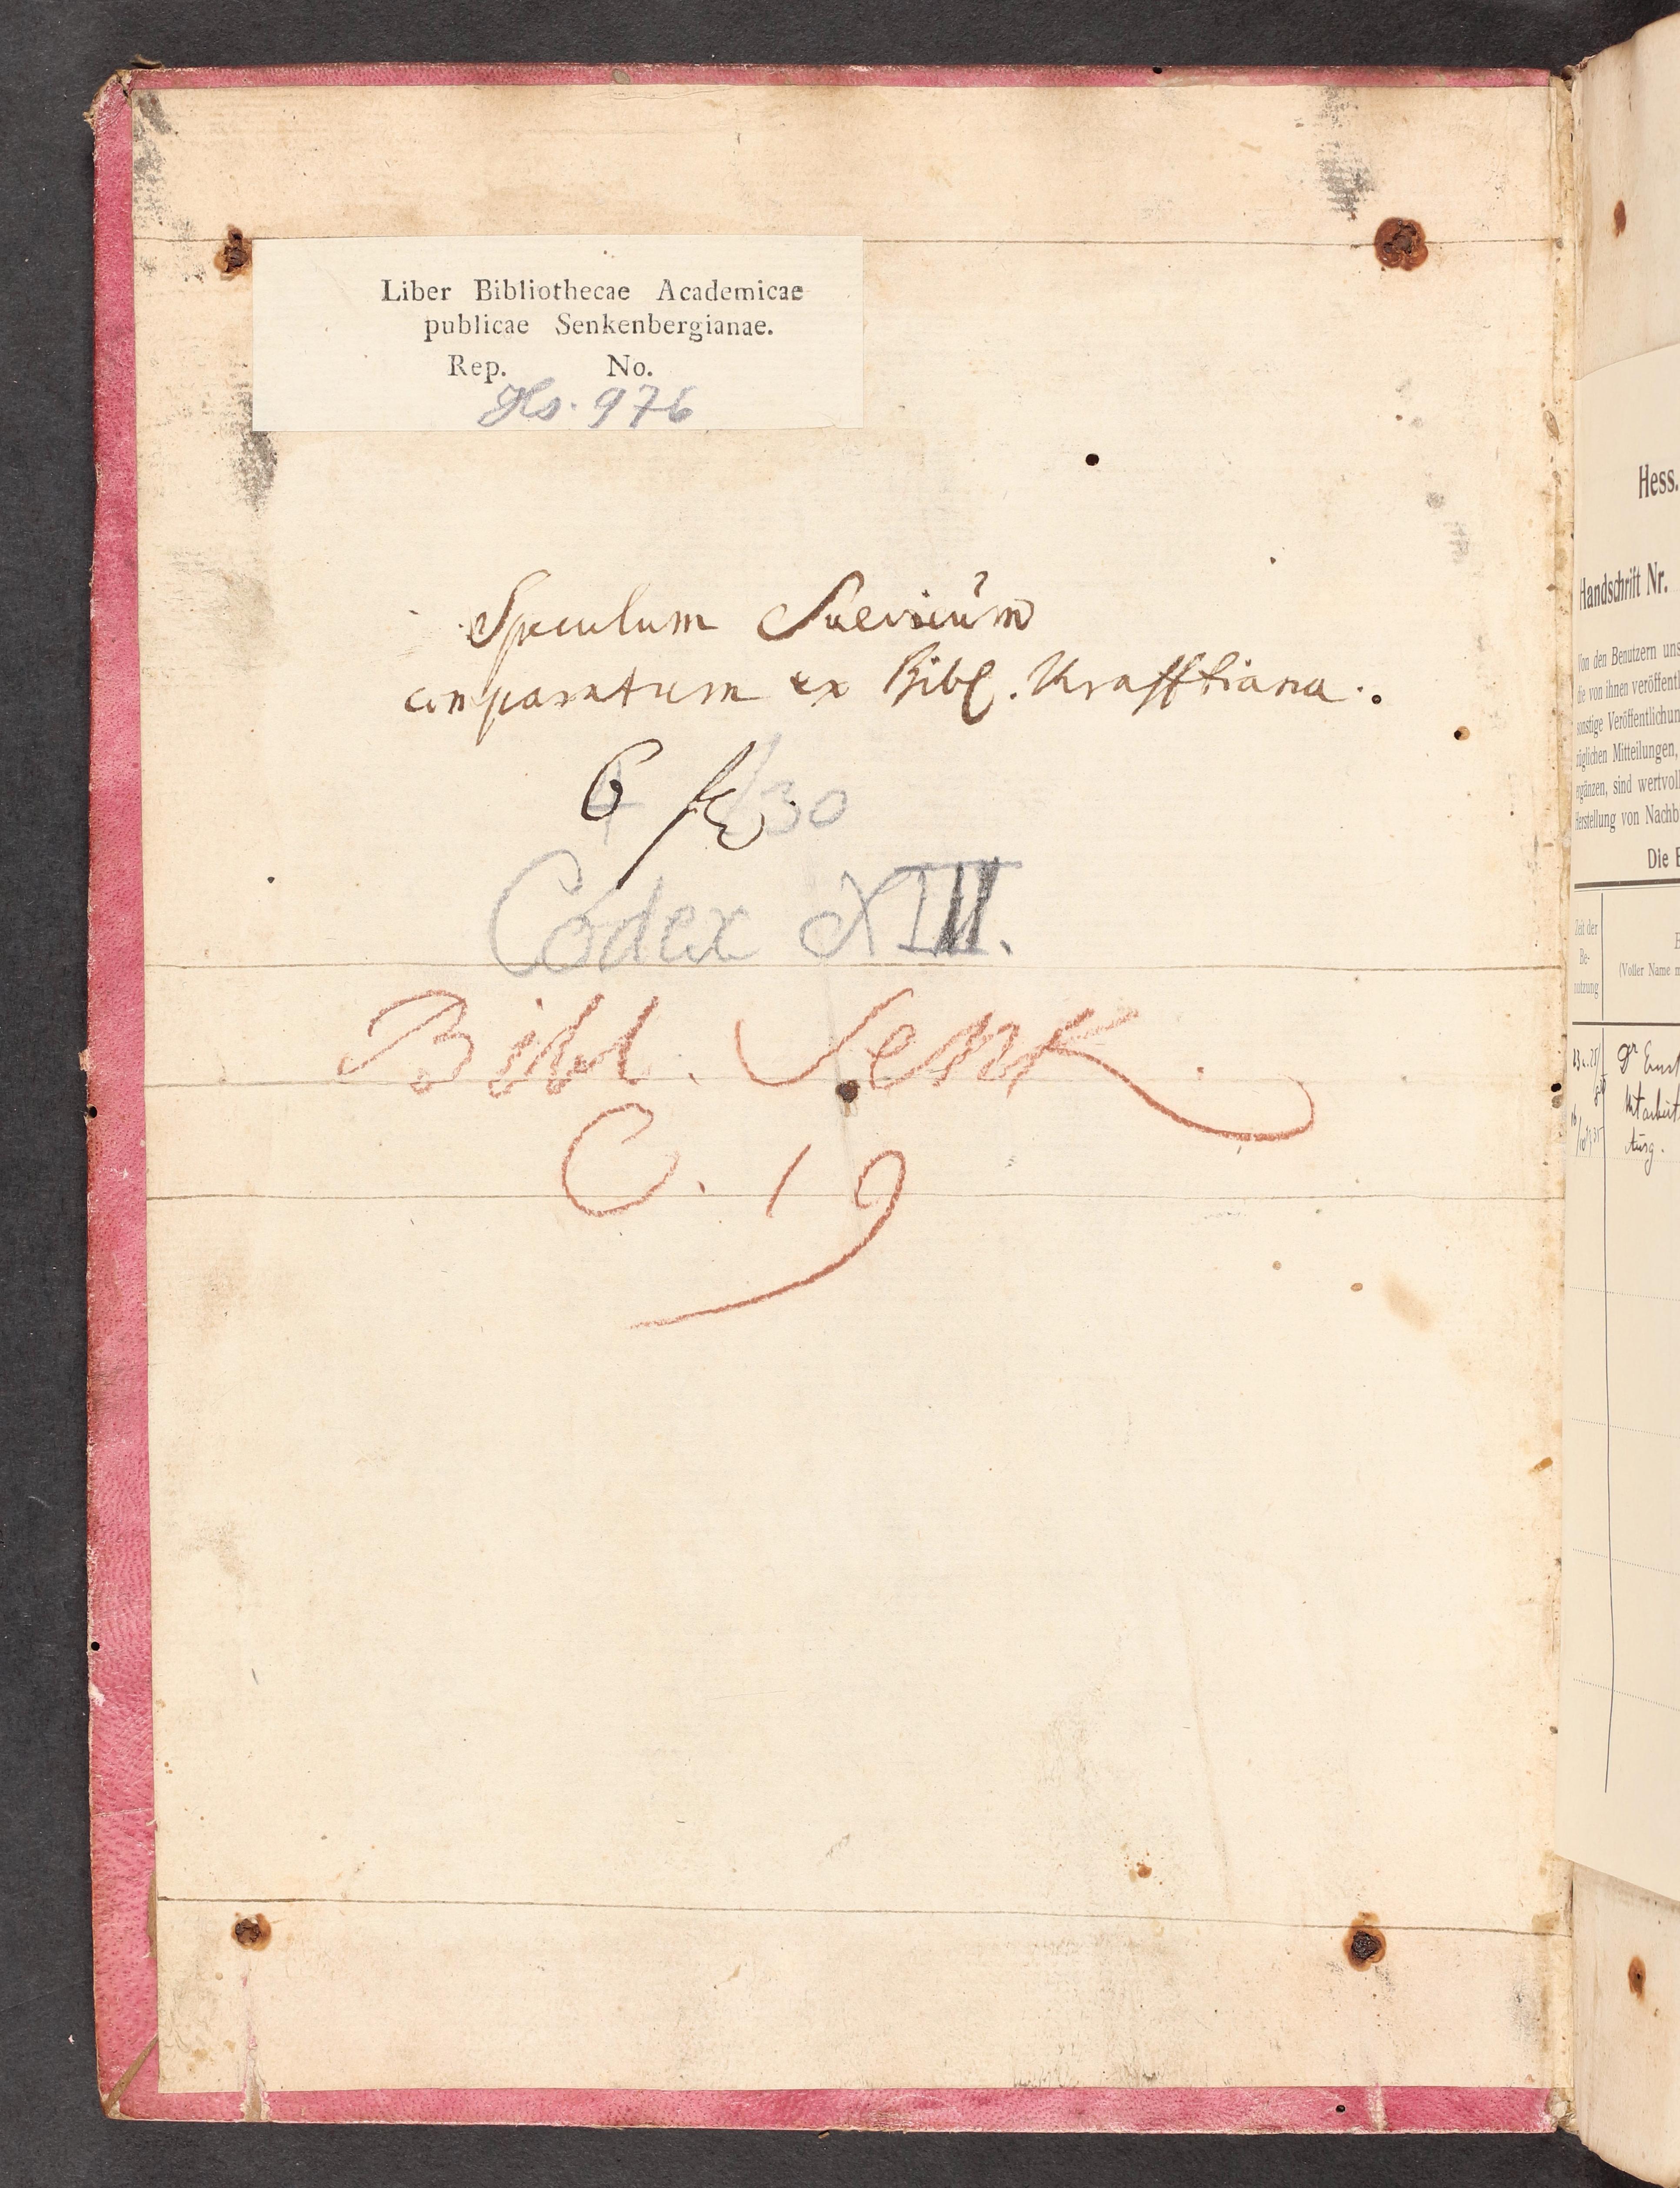 Liber Bibliothecae Academicae
publicae Senkenbergianae.
Rep. No.
Hs. 976
Speculum Suevicum
comparatum ex Bibl. Krafftiana.
6
30
Codex XIII.
Bibl. Senk.
C. 19
Hess.
Handschrift Nr.
Von den Benutzern uns
die von ihnen veröffentl
sonstige Veröffentlichun
züglichen Mitteilungen,
ergänzen, sind wertvoll
Herstellung von Nachb
Die B
Zeit der
Be-
nutzung
(Voller Name m
Dr Ernst
Mitarbeit
Ausg.